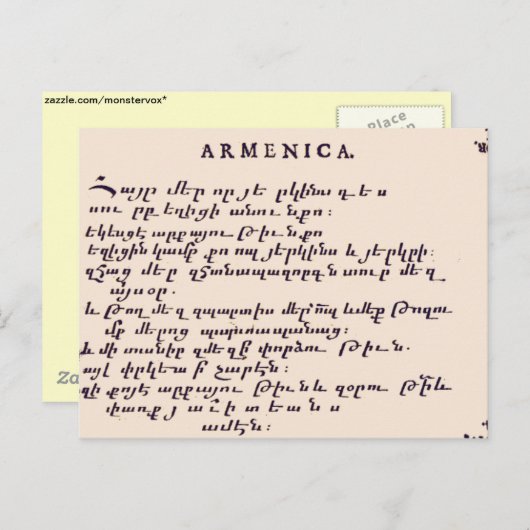 zazzle.com/monstervox*
Place
ARMENICA.
Հայր մեր որ յերկինս ես
սուրբ եղիցի անուն քո:
եկեսցէ արքայու Թիւն քո
եղիցին կամք քո որպ յերկինս և յերկրի:
զհաց մեր զհանապազորդ տուր մեզ
այսօր.
և Թող մեզ զպարտիս մեր և մեք Թողու
մք մերոց պարտապանաց:
և մի տանիր զմեզ ի փորձու Թիւն.
այլ փրկեա ի չարէն:
զի քո յէ արքայու Թիւն և զօրու Թի և
փառք յաւիտեանս
ամէն:
Za